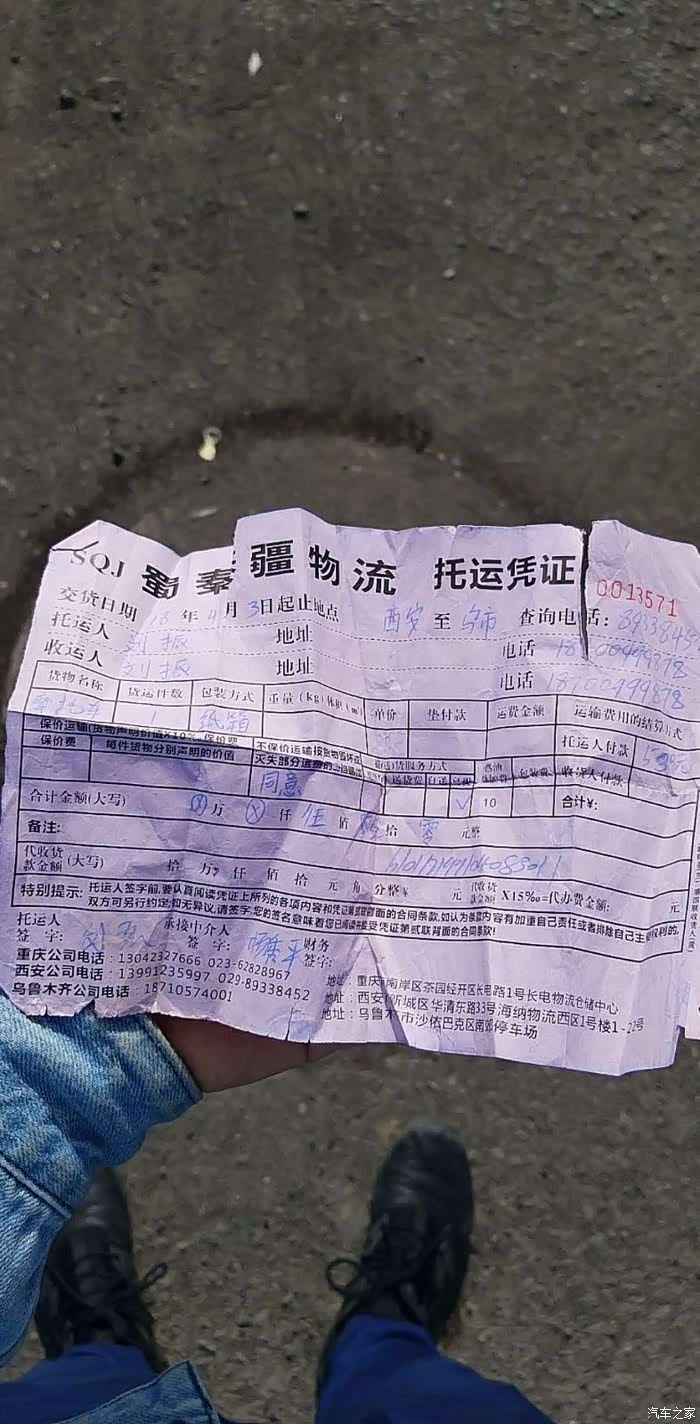 SQJ 蜀秦疆物流 托运凭证 0013571
交货日期 18年4月3日起止地点 西安至乌市 查询电话:
托运人 刘振 地址 电话
收运人 刘振 地址 电话
货物名称 货运件数 包装方式 重量(Kg)体积(m³) 单价 垫付款 运费金额 运输费用的结算方式
摩托车 1 纸箱 托运人付款
保价运输(货物声明价值X10% 保价费
保价费 每件货物分别声明的价值 不保价运输按货物毁坏或 送货费 自送 自提 包装费 收货人付款
灭失部分运费的
同意 √ 10 合计¥:
合计金额(大写) ⊗万 ⊗仟 伍佰 拾 零 元整
备注:
代收货
款金额(大写) 拾 万 仟 佰 拾 元 角 分整¥ 元 代收货款金额 X15‰=代办费金额: 元
特别提示: 托运人签字前,要认真阅读凭证上所列的各项内容和凭证第贰联背面的合同条款,如认为条款内容有加重自己责任或者排除自己主要权利的,
双方可另行约定;如无异议,请签字,您的签名意味着您已阅读并接受凭证第贰联背面的合同条款!
托运人签字: 承接中介人签字: 财务签字:
重庆公司电话:13042327666 023-62828967 地址:重庆南岸区茶园经开区长电路1号长电物流仓储中心
西安公司电话:13991235997 029-89338452 地址:西安新城区华清东路33号海纳物流西区1号楼1-22号
乌鲁木齐公司电话:18710574001 地址:乌鲁木市沙依巴克区南郊停车场
汽车之家